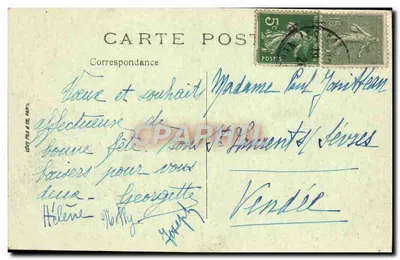 CARTE POST
Correspondance
Vœux et souhaits
affectueux de
bonne fête. Bons
baisers pour vous
deux. Georgette
Hélène
Joseph
Madame Paul
St Laurent s/ Sèvres
Vendée
5c
POSTES
CPAPHIL